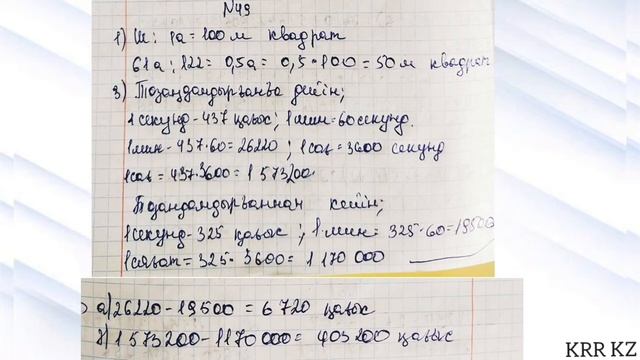 №49
1) Ш: 1а = 100 м квадрат
61а : 122 = 0,5а = 0,5 * 100 = 50 м квадрат
3) Тозаңдандырғанға дейін;
1 секунд - 437 қавыс; 1 мин = 60 секунд.
1 мин - 437 · 60 = 26220 ; 1 сағ = 3600 секунд
1 сағ = 437 · 3600 = 1 573200
Тозандандырғаннан кейін;
1 секунд - 325 қавыс ; 1 мин = 325 · 60 = 19500
1 сағат = 325 · 3600 = 1 170 000
а) 26220 - 19500 = 6 720 қавыс
б) 1 573200 - 1170 000 = 403200 қавыс
KRR KZ